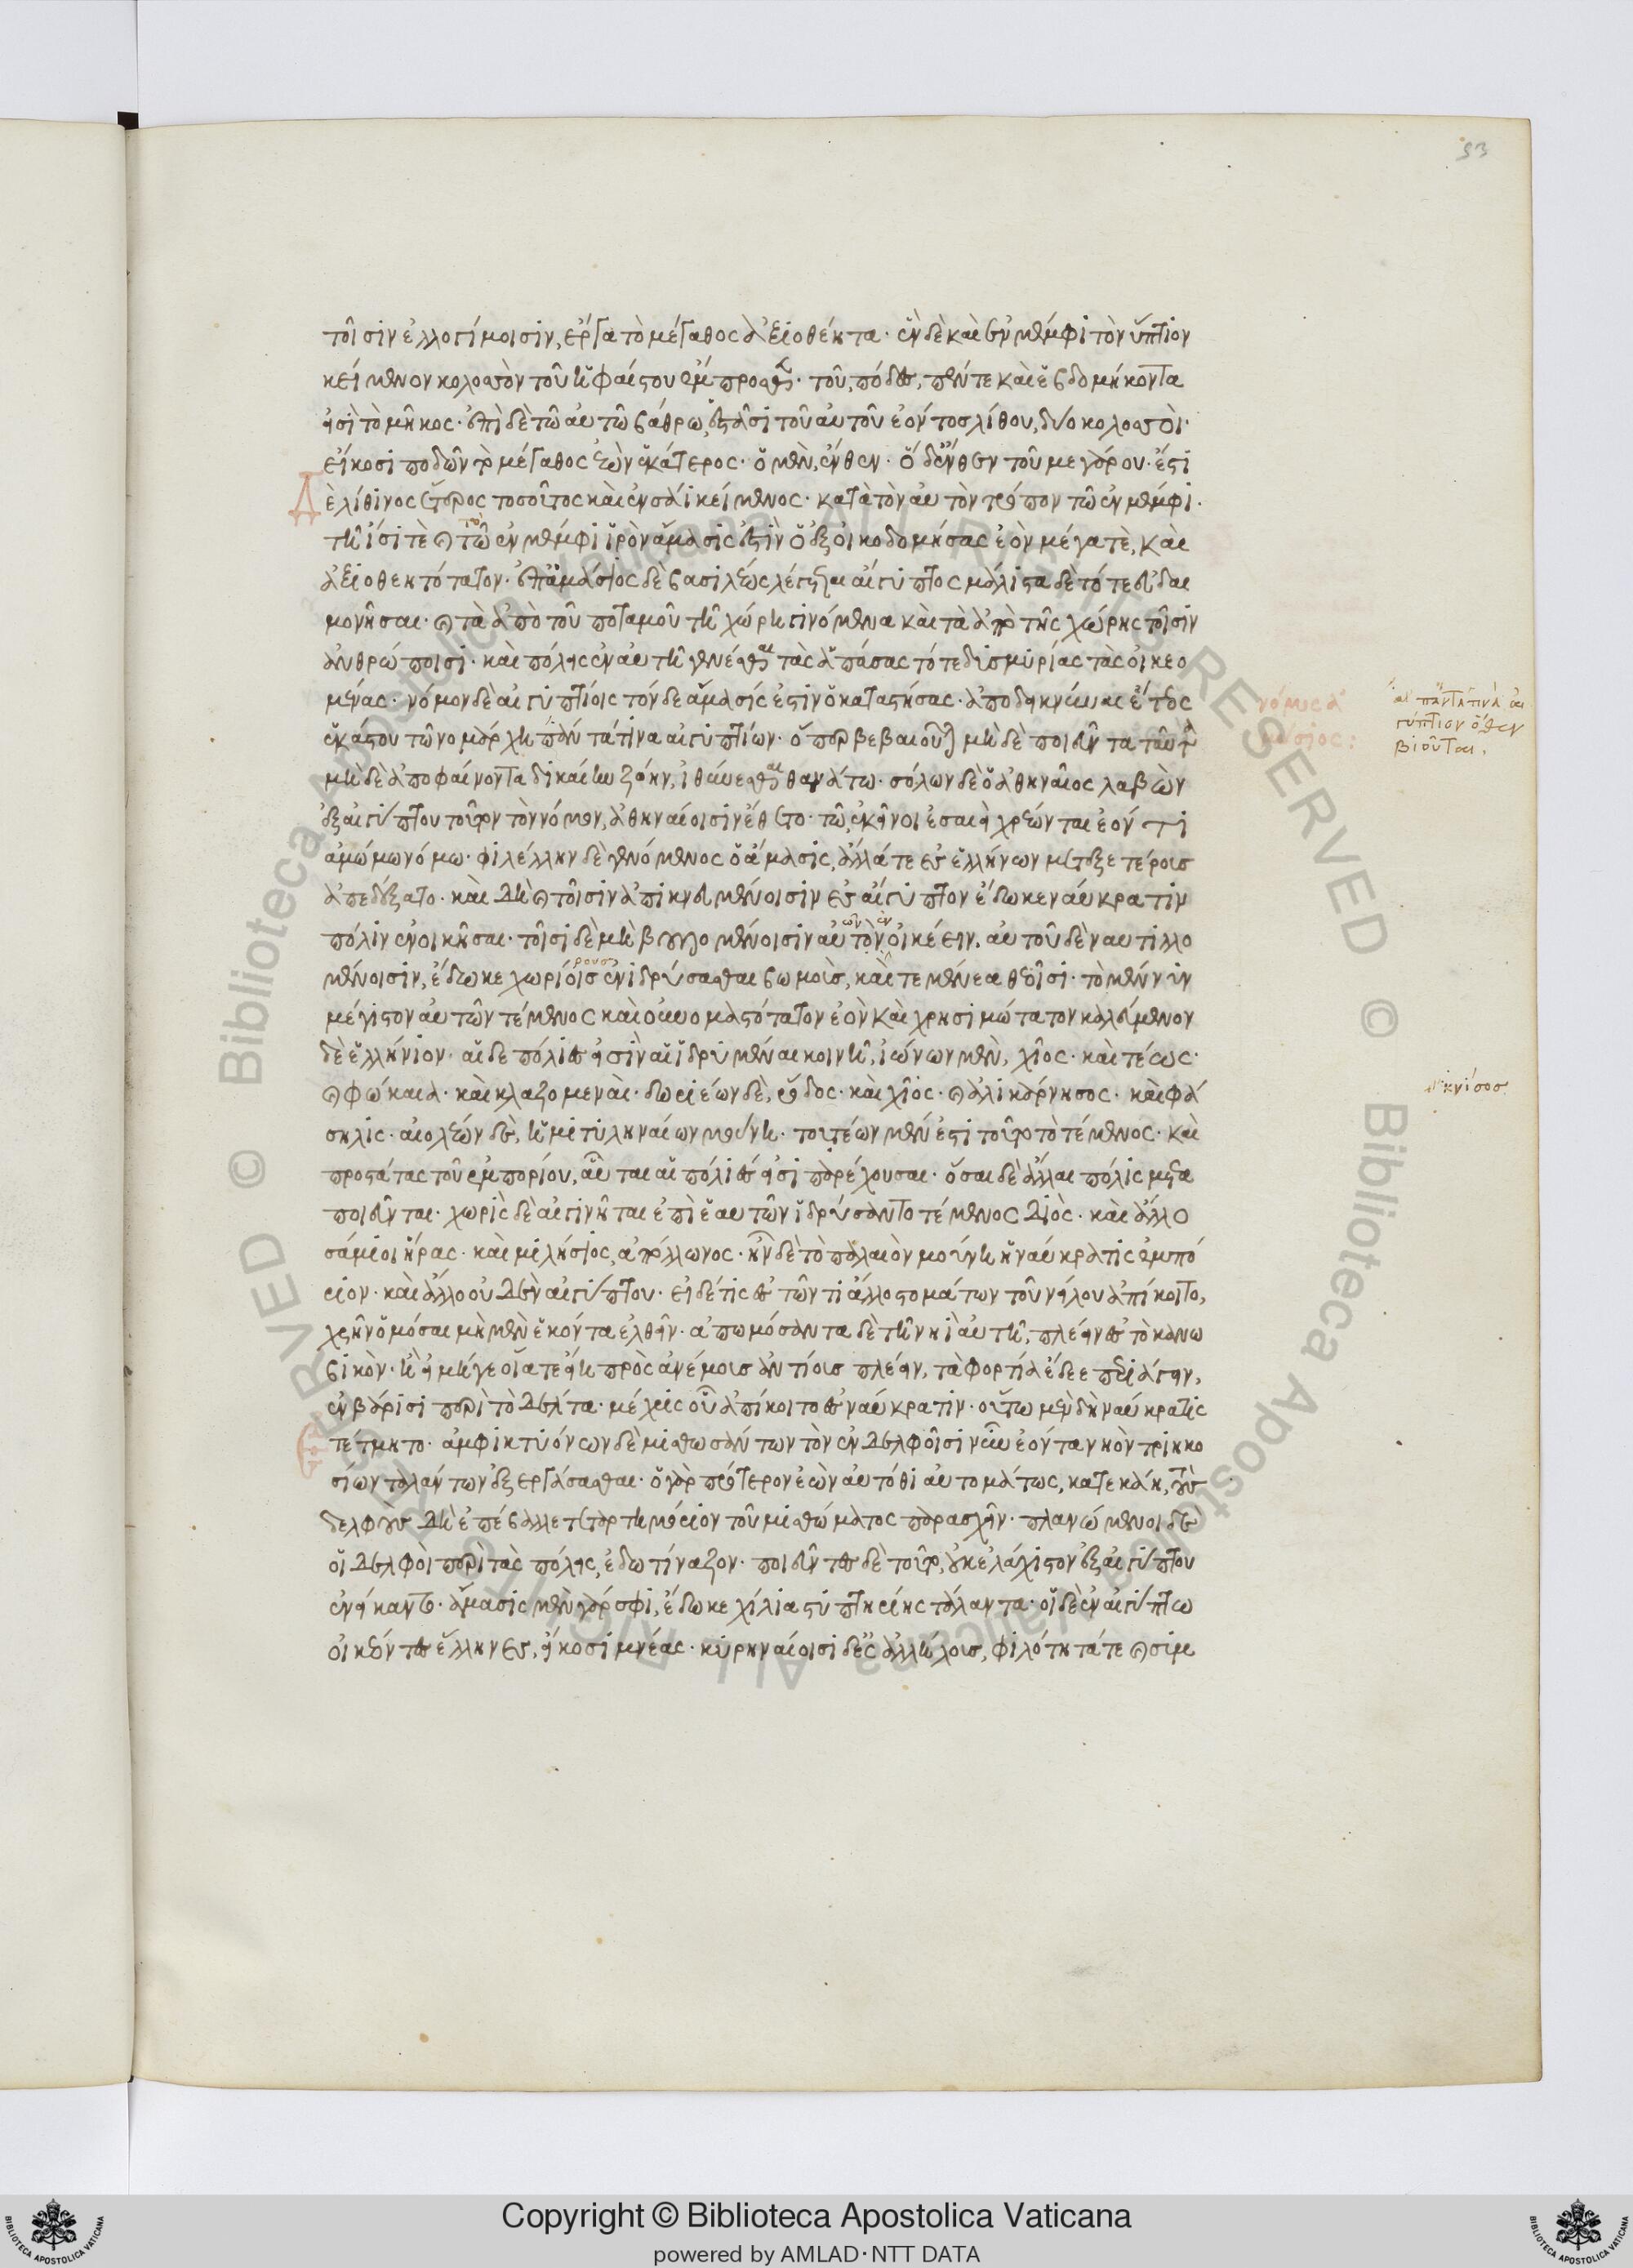 93
τοῖσιν ἐλλογίμοισιν, ἔργα τὸ μέγαθος ἀξιοθέητα· ἐν δὲ καὶ ἐν μέμφι τὸν ὕπτιον
κείμενον κολοσσὸν τοῦ ἡφαίστου ἔμπροσθε· τοῦ, πόδες, πέντε καὶ ἑβδομήκοντα
εἰσὶ τὸ μῆκος· ἐπὶ δὲ τῶ αὐτῶ βάθρω, ἑστᾶσι τοῦ αὐτοῦ ἐόντος λίθου, δύο κολοσσοὶ·
εἴκοσι ποδῶν τὸ μέγαθος ἐὼν ἑκάτερος· ὁ μὲν, ἔνθεν· ὁ δ' ἔνθεν τοῦ μεγάρου· ἔστι
δὲ λίθινος ἕτερος τοσοῦτος καὶ ἐν σάϊ κείμενος· κατὰ τὸν αὐτὸν τρόπον τῶ ἐν μέμφι·
τῆ ἴσι τε καὶ τὸ ἐν μέμφι ἱρὸν ἄμασις ἐστὶν ὁ ἐξοικοδομήσας ἐὸν μέγα τὲ, καὶ
ἀξιοθεητότατον· ἐπ' ἀμάσιος δὲ βασιλέως λέγεται αἴγυπτος μάλιστα δὲ τότε εὐδαι
μονῆσαι· καὶ τὰ ἀπὸ τοῦ ποταμοῦ τῆ χώρη γινόμενα καὶ τὰ ἀπὸ τῆς χώρης τοῖσιν
ἀνθρώποισι· καὶ πόλις ἐν αὐτῆ γενέσθαι τὰς ἁπάσας τότε δισμυρίας τὰς οἰκεο
μένας· νόμον δὲ αἰγυπτίοις τόνδε ἄμασίς ἐστιν ὁ καταστήσας· ἀποδεικνύναι ἔτεος
ἑκάστου τῶ νομάρχη πάντά τινα αἰγυπτίων· ὅπερ βεβαιοῦται μηδὲ ποιεῦντα ταῦτα
μηδὲ ἀποφαίνοντα δικαίην ζόην, ἰθύνεσθαι θανάτω· σόλων δὲ ὁ ἀθηναῖος λαβὼν
ἐξ αἰγύπτου τοῦτον τὸν νόμον, ἀθηναίοισιν ἔθετο· τῶ, ἐκεῖνοι ἐσαιεὶ χρέωνται ἐόντι
ἀμώμω νόμω· φιλέλλην δὲ γενόμενος ὁ ἄμασις, ἄλλά τε ἐς ἑλλήνων μετεξετέροισ
ἀπεδέξατο· καὶ δὴ καὶ τοῖσιν ἀπικνευμένοισιν ἐς αἴγυπτον ἔδωκε ναύκρατιν
πόλιν ἐνοικῆσαι· τοῖσι δὲ μὴ βουλομένοισιν αὐτὸν οἰκέειν. αὐτοῦ δὲ ναυτιλλο
μένοισιν, ἔδωκε χωρίοισ ἐνιδρύσασθαι βωμοὺσ, καὶ τεμένεα θεοῖσι· τὸ μέν νιν
μέγιστον αὐτῶν τέμενος καὶ οὐνομαστότατον ἐὸν καὶ χρησιμώτατον καλεύμενον
δὲ ἑλλήνιον· αἵδε πόλιες εἰσὶν αἱ ἱδρυμέναι κοινῆ, ἰώνων μὲν, χῖος· καὶ τέως·
καὶ φώκαια· καὶ κλαζομεναὶ· δωριέων δὲ, ῥόδος· καὶ χῖος· καὶ ἁλικάρνησος· καὶ φά
σηλις· αἰολέων δὲ, ἡ μιτυληναίων μούνη· τουτέων μέν ἐστι τοῦτο τὸ τέμενος· καὶ
προστάτας τοῦ ἐμπορίου, αὗται αἱ πόλιές εἰσι παρέχουσαι· ὅσαι δὲ ἄλλαι πόλις μετα
ποιεῦνται· χωρὶς δὲ αἰγινῆται ἐπὶ ἑαυτῶν ἱδρύσαντο τέμενος διὸς· καὶ ἄλλο
σάμιοι ἥρας· καὶ μιλήσιος, ἀπόλλωνος· ἦν δὲ τὸ παλαιὸν μούνη ἡ ναύκρατις ἐμπό
ριον· καὶ ἄλλο οὐδὲν αἰγύπτου· εἰ δέ τις ἐς τῶν τι ἄλλο στομάτων τοῦ νείλου ἀπίκοιτο,
χρῆν ὀμόσαι μὴ μὲν ἑκόντα ἐλθεῖν· ἀπωμόσαντα δὲ τῆ νηῒ αὐτῆ, πλέειν ἐς τὸ κανω
βικὸν· ἢ εἰ μή γε οἷά τε εἴη πρὸς ἀνέμοισ ἀντίοισ πλέειν, τὰ φορτία ἔδεε περιάγειν,
ἐν βάρισι περὶ τὸ δέλτα· μέχρις οὗ ἀπίκοιτο ἐς ναύκρατιν· οὕτω μὲν δὴ ναύκρατις
ἐτετίμητο· ἀμφικτυόνων δὲ μισθωσάντων τὸν ἐν δελφοῖσι νῦν ἐόντα νηὸν τριηκο
σίων ταλάντων ἐξεργάσασθαι· ὁ γὰρ πρότερον ἐὼν αὐτόθι αὐτομάτως, κατεκάη, τοὺς
δελφοὺς δὴ ἐπέβαλλε τεταρτημόριον τοῦ μισθώματος παρασχεῖν· πλανώμενοι δὲ
οἱ δελφοὶ περὶ τὰς πόλις, ἐδωτίναζον· ποιεῦντες δὲ τοῦτο, οὐκ ἐλάχιστον ἐξ αἰγύπτου
ἐνείκαντο· ἄμασις μὲν γάρ σφι, ἔδωκε χίλια στυπτηρίης τάλαντα· οἱ δὲ ἐν αἰγύπτω
οἰκέοντες ἕλληνες, εἴκοσι μνέας· κυρηναίοισι δὲ ἐς ἀλλήλους, φιλότητά τε καὶ συμ
νόμος ἀ
μάσιος:
βιοῦται.